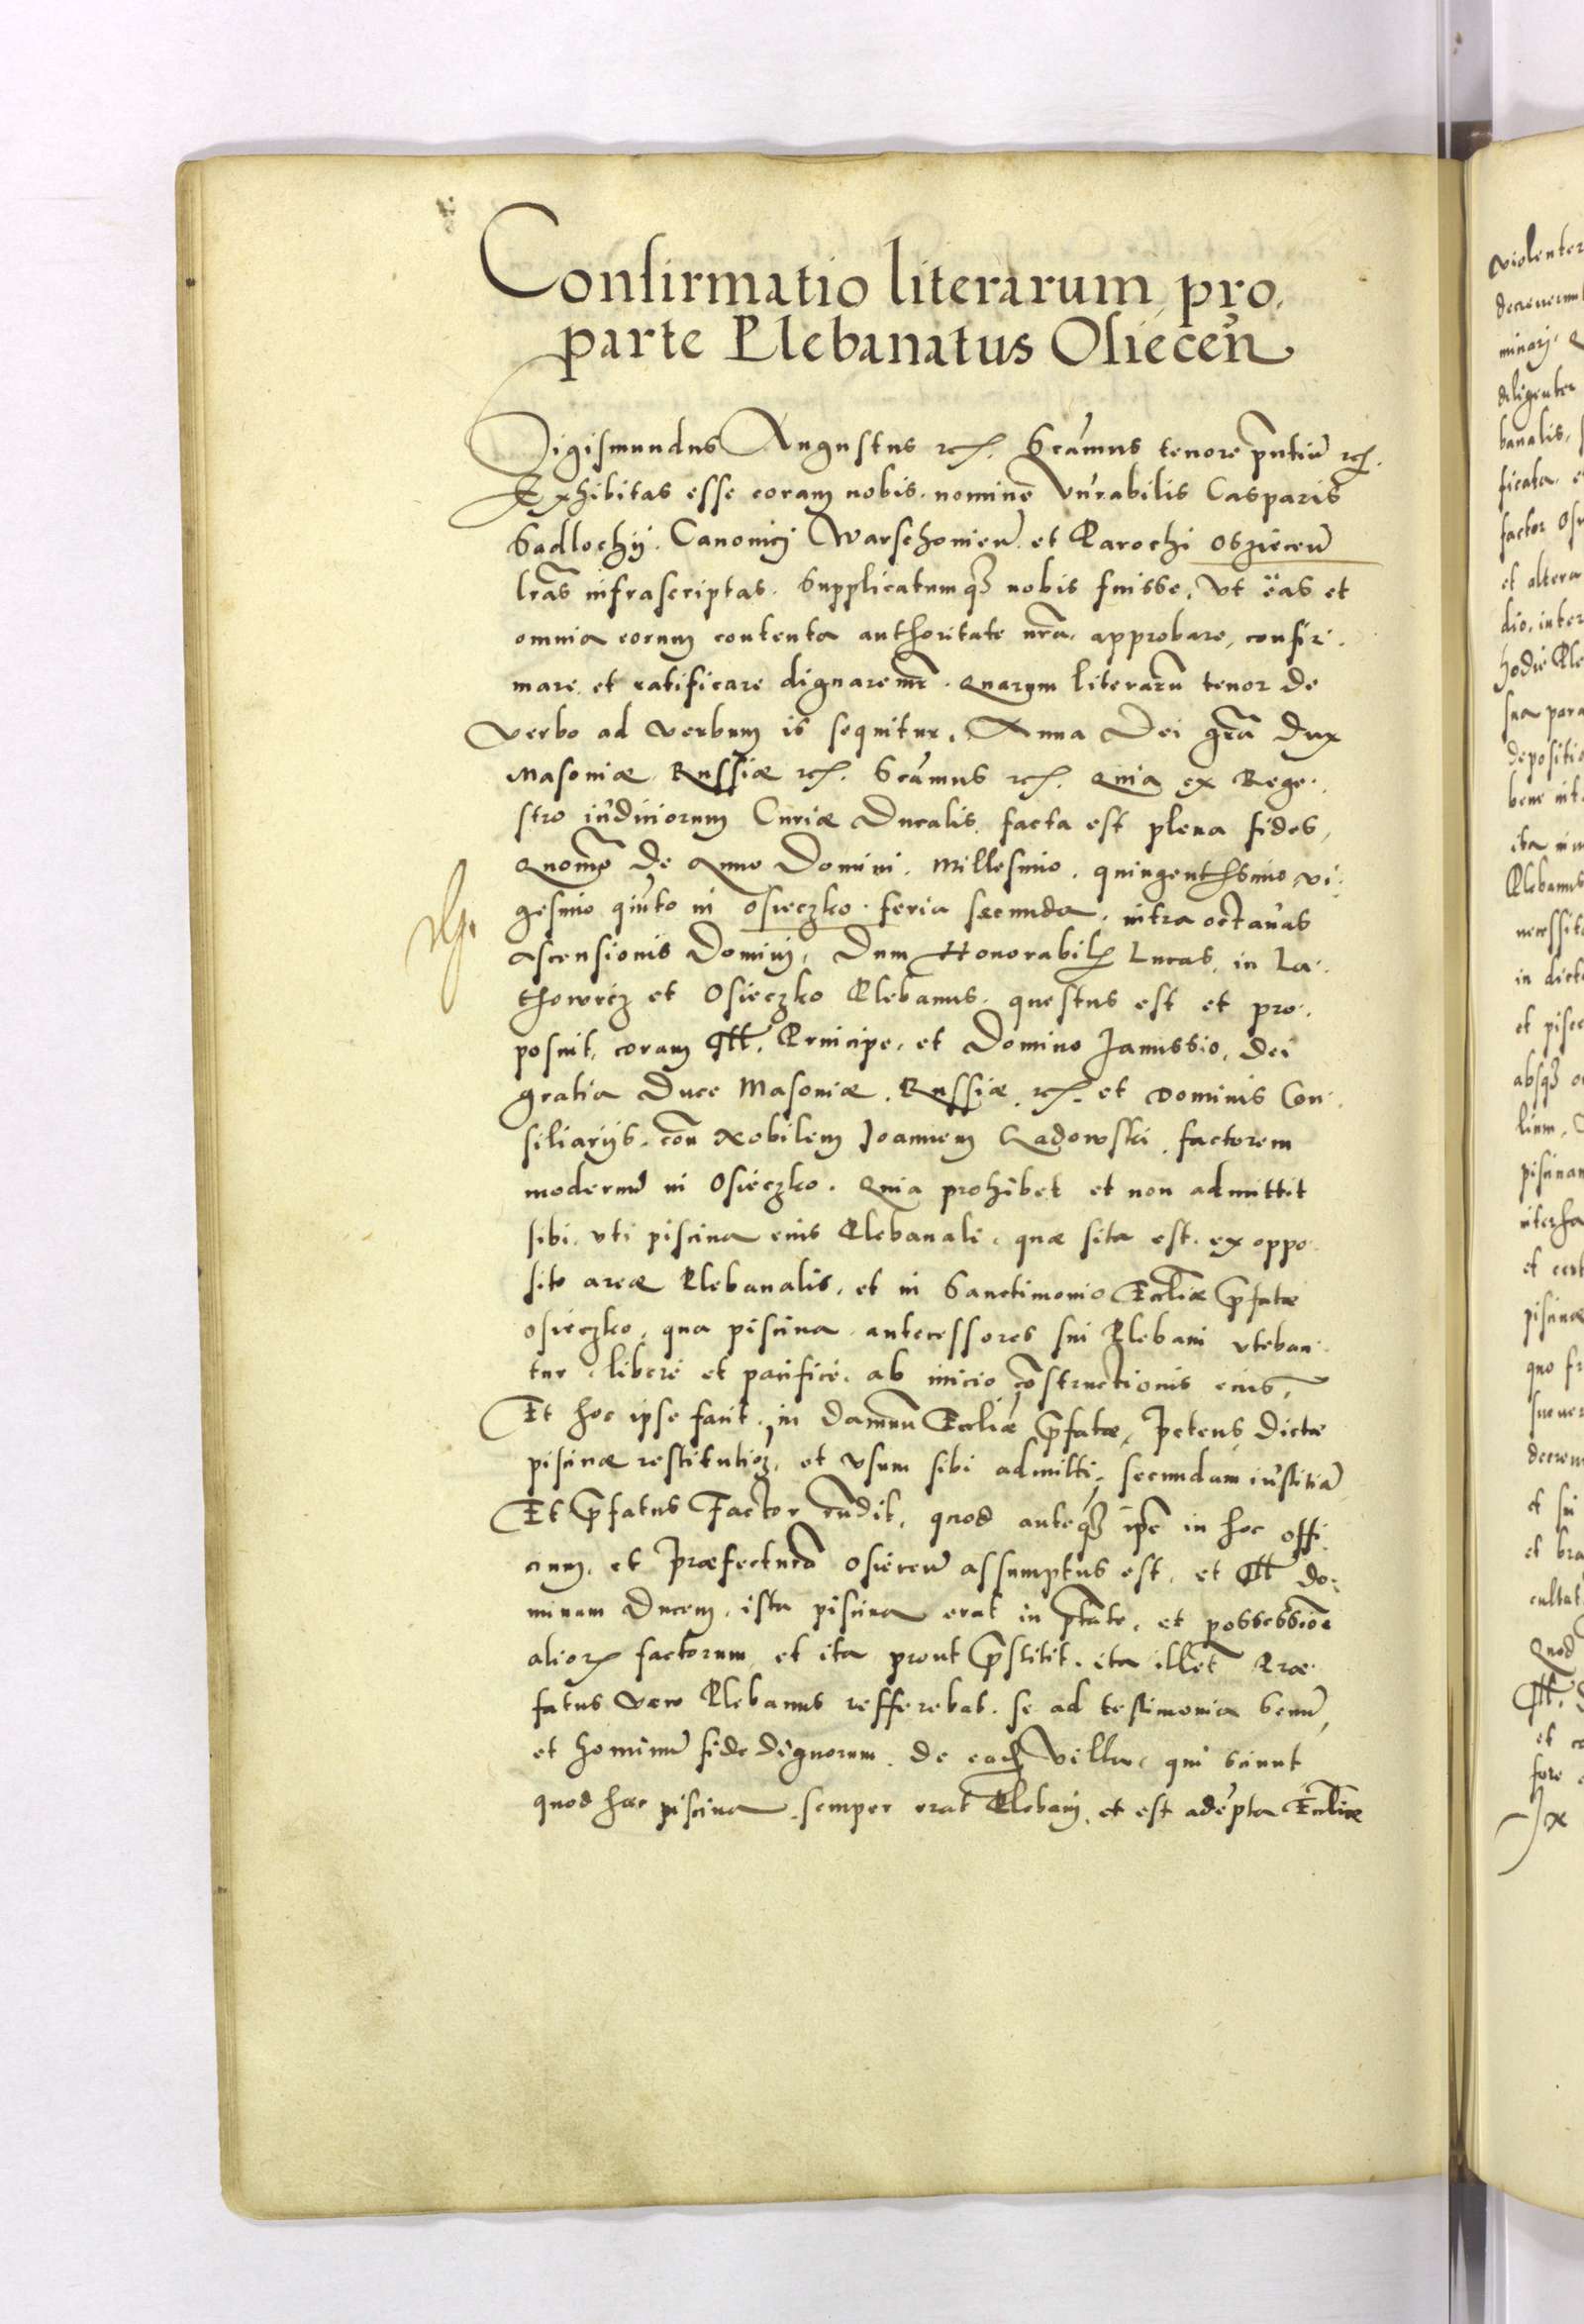 Confirmatio literarum pro
parte Plebanatus Osiecen̄
Sigismundus Augustus rc̃. Sc̃amus tenore p̃ntiũ rc̃.
Exhibitas esse coram nobis nomine Vnr̃abilis Casparis
Sadlochij Canonicj Warschouieñ et Parochi Oszieceñ
lr̃as infrascriptas. Supplicatumqʒ nobis fuisse, vt eas et
omnia eorum contenta authoritate nr̃a approbare, confir.
mare et ratificare dignaremr̃. Quarum literarũ tenor de
verbo ad verbum is sequitur. Anna Dei gr̃a Dux
Masouiæ Russiæ rc̃. Sc̃amus rc̃. Quia ex Rege.
stro iudiciorum Curiæ Ducalis facta est plena fides,
Quom̃o de Anno Domini Millesimo quingenthesimo vi.
gesimo quinto in Osieczko feria secunda intra octauas
Ascensionis Dominj, Dum Honorabilʒ Lucas in La.
thowicz et Osieczko Plebanus questus est et pro.
posuit coram Ill. Principe et Domino Janussio, Dei
gratia Duce Masouiæ Russiæ rc̃. et Dominis Con.
siliarijs con̄ Nobilem Joannem Radowski factorem
modernũ in Osieczko. Quia prohibet et non admittit
sibi vti piscina eius Plebanali, quæ sita est ex oppo.
sito areæ Plebanalis, et in Sanctimonio Eccl̃iæ p̃fatæ
Osieczko, qua piscina antecessores sui Plebani vteban.
tur liberè et pacificè ab inicio cõstructionis eius,
Et hoc ipse facit in damnũ Eccl̃iæ p̃fatæ, Petens dictæ
piscinæ restitutioʒ, et vsum sibi admitti, secundum iustitiã
Et p̃fatus Factor rñdit, quod anteqʒ ip̃e in hoc offi.
cium, et Præfecturã Osieceñ assumptus est, et Ill Do.
minum Ducem, ista piscina erat in p̃tate, et possessiõe
aliorʒ factorum et ita prout p̃stitit, ita illet̃ Præ.
fatus vero Plebanus refferebat se ad testimonia Senũ
et hominũ fide dignorum de ead̃ Villa, qui sciunt
quod hæc piscina semper erat Plebanj, et est adempta Eccl̃iæ